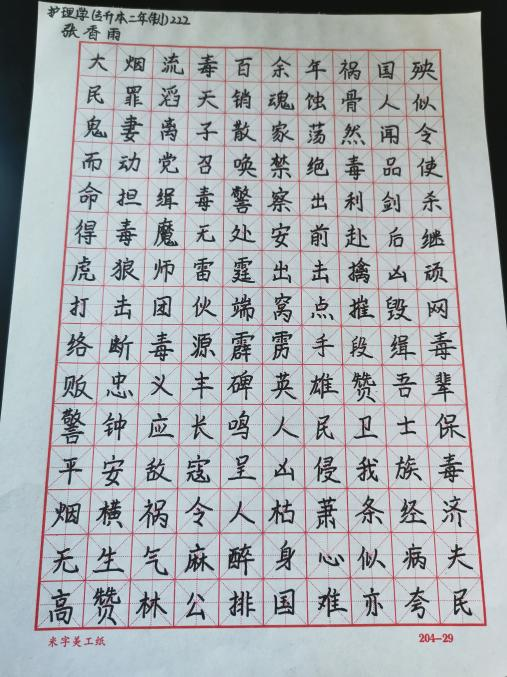 护理学(专升本二年制)222
张香雨
大烟流毒百余年祸国殃
民罪滔天销魂蚀骨人似
鬼妻离子散家荡然闻令
而动党召唤禁绝毒品使
命担缉毒警察出利剑杀
得毒魔无处安前赴后继
虎狼师雷霆出击擒凶顽
打击团伙端窝点摧毁网
络断毒源霹雳手段缉毒
贩忠义丰碑英雄赞吾辈
警钟应长鸣人民卫士保
平安敌寇呈凶侵我族毒
烟横祸令人枯萧条经济
无生气麻醉身心似病夫
高赞林公排国难亦夸民
米字美工纸 204-29